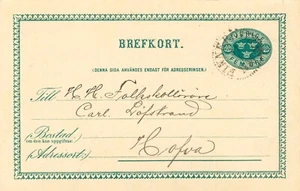 BREFKORT.
(DENNA SIDA ANVÄNDES ENDAST FÖR ADRESSERINGEN.)
Till H. H. Folkskolläraren
Carl Löfstrand
(Bostad)
(om den kan uppgifvas.)
(Adressort:) Hofva